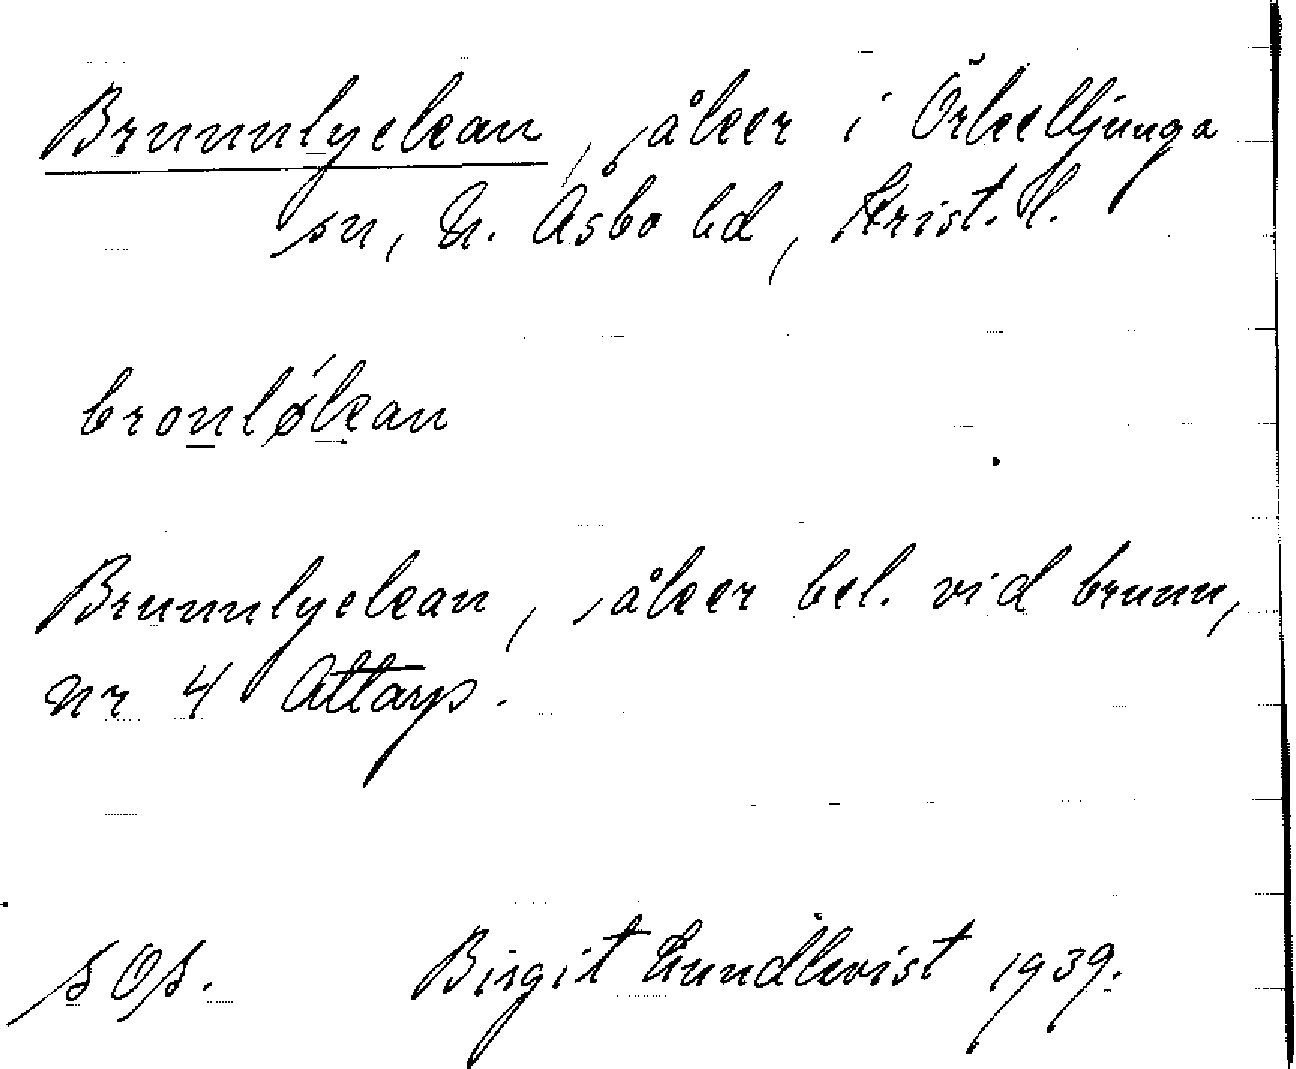 Brunnlyckan, åker i Örkelljunga
sn, N. Åsbo hd, Krist. l.
bronløkan
Brunnlyckan, åker bel. vid brunn,
nr 4 Attarp.
s Os. Birgit Lundkvist 1939.